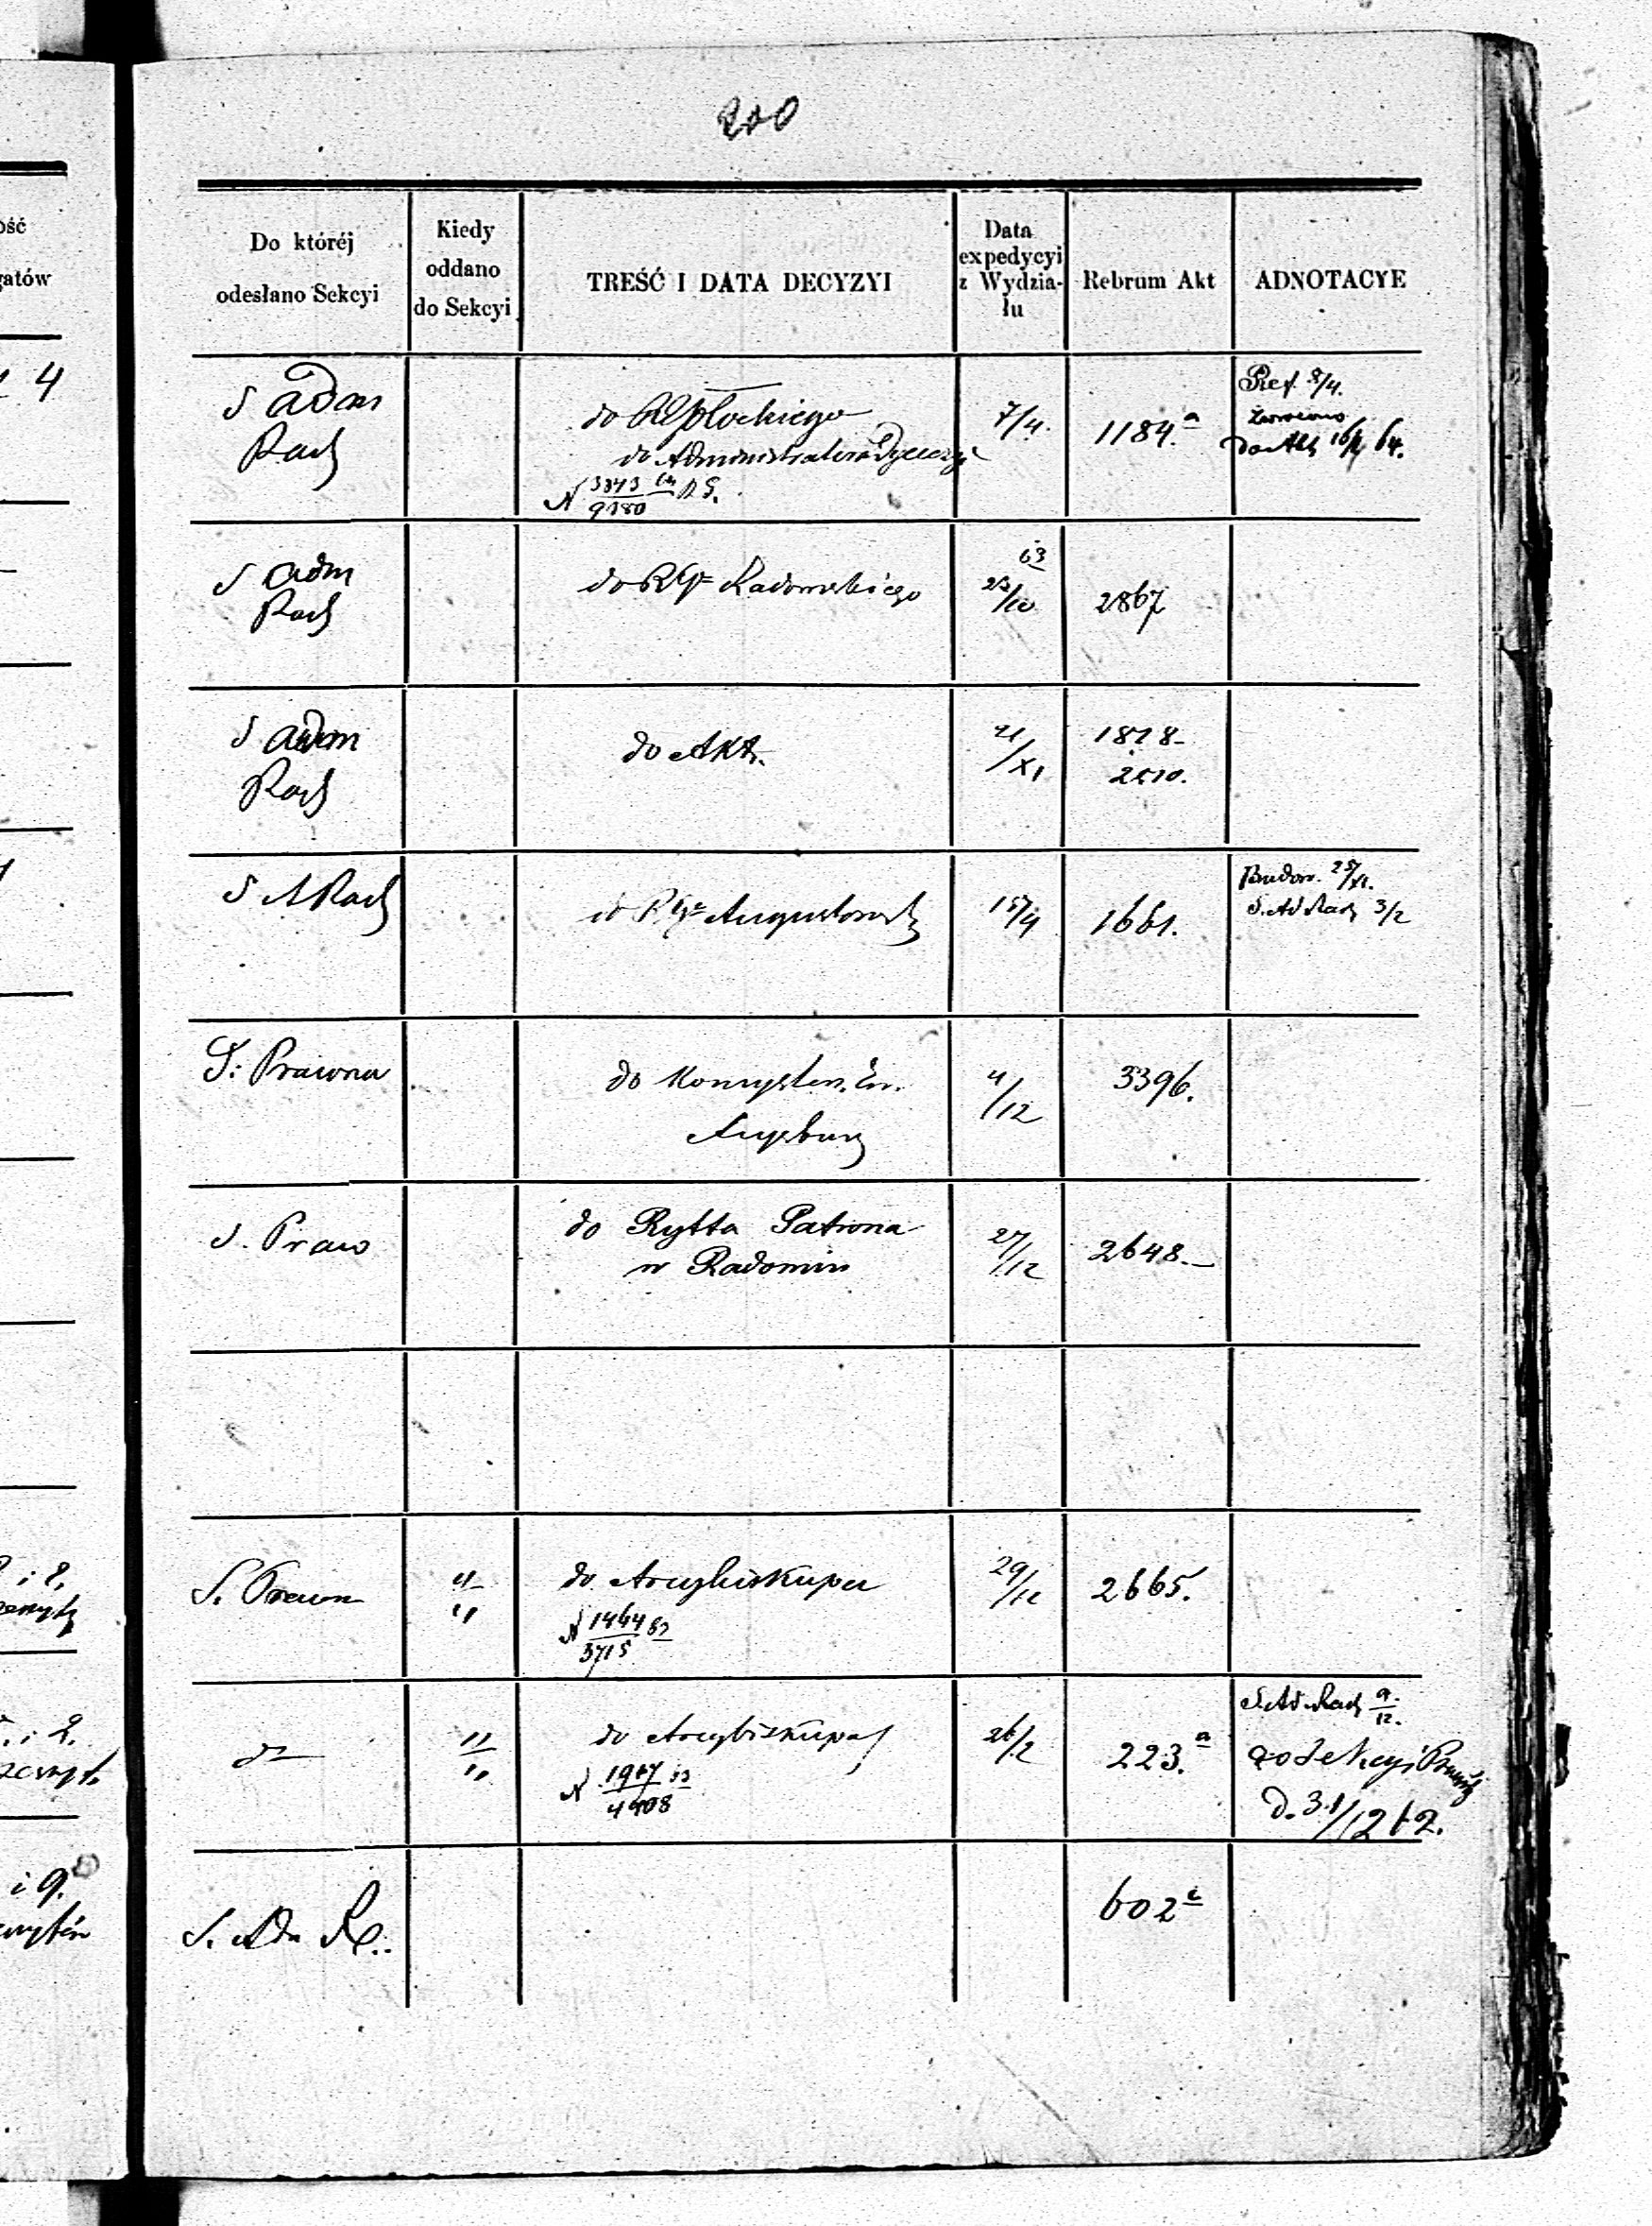 200
Do któréj
odesłano Sekcyi
Kiedy
oddano
do Sekcyi
TREŚĆ I DATA DECYZYI
Data
expedycyi
z Wydzia-
łu
Rebrum Akt
ADNOTACYE
S Adm
Rach
do Płockiego
do Administratora Dyecezyi
N 3373/9180
7/4.
1184.a
Pref. 8/4.
zwrócono
do Akt 16/4 64.
S Adm
Rach
do RGu Radomskiego
63
23/10
2867
S Adm
Rach
do Akt.
21/XI
1818-
2510.
S A Rach
do RGu Augustowsk
15/4
1661.
Budow. 25/XI.
S. Ad Rach 3/2
S: Prawna
do Konsystor. Ew.
Augsburg
4/12
3396.
S. Praw
do Rytta Patrona
w Radomiu
27/12
2648.-
S. Prawn
"
"
do Arcybiskupa
N 1464/3715 63
29/12
2665.
dto
"
"
do Arcybiskupa
N 1967/4908 63
26/2
223.a
S. Ad. Rach 9/12.
do Sekcyi Prawnej
d. 31/12 62.
S. Ad R.
602c
4